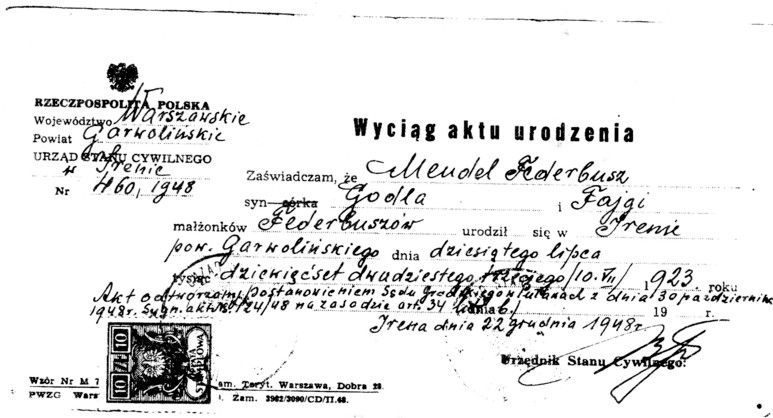 RZECZPOSPOLITA POLSKA
Województwo Warszawskie
Powiat Garwolińskie
URZĄD STANU CYWILNEGO
w Irenie
Nr 460, 1948
Wyciąg aktu urodzenia
Zaświadczam, że Mendel Federbusz
syn córka Godla i Fajgi
małżonków Federbuszów urodził się w Irenie
pow. Garwolińskiego dnia dziesiątego lipca
tysiąc dziewięćset dwudziestego trzeciego /10.VII/ 1923. roku
Akt odtworzony postanowieniem Sądu Grodzkiego w Puławach z dnia 30 października
1948r. Sygn. akt 124/48 na zasadzie art. 34 dnia 19 r.
Irena dnia 22 grudnia 1948r
Urzędnik Stanu Cywilnego:
10 ZŁ 10
Wzór Nr M 7 am. Teryt. Warszawa, Dobra 28
PWZG Wars l. Zam. 3982/3090/CD/II.48.